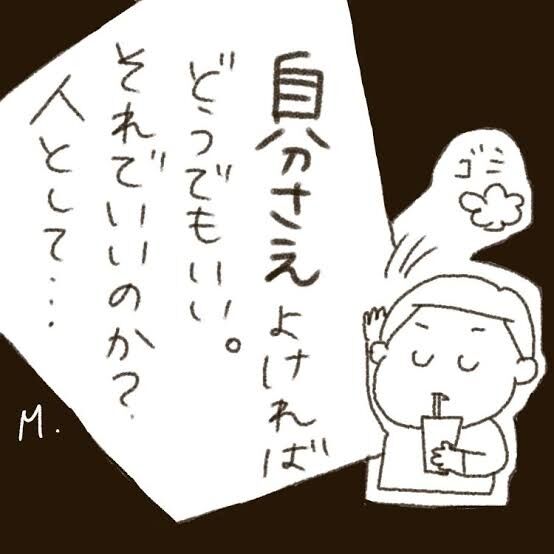 自分さえよければ
どうでもいい。
それでいいのか？
人として…
ゴミ
M.